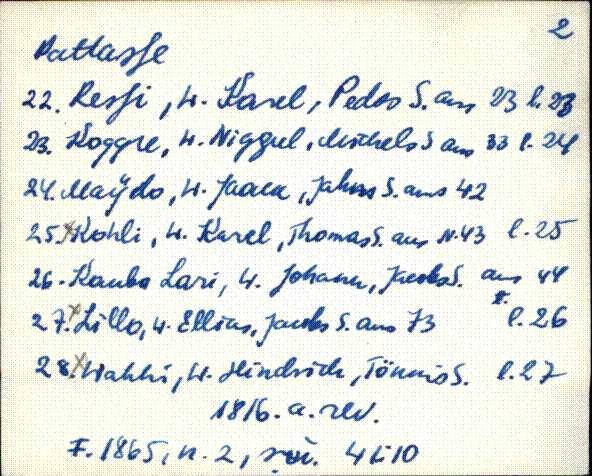 2
Pattasse
22. Ressi, W. Karel, Pedo S. aus 23 l. 23
23. Koggre, W. Niggul, Michels S aus 33 l. 24
24. Maÿdo, W. Jaack, Jahns S. aus 42
25. Kohli, W. Karel, Thomas S. aus N.43 l. 25
26. Kauba Lari, W. Johann, Jacobs S. aus 44
27. Lillo, W. Ellias, Jacobs S. aus 73 l. 26
28. Wahhi, W. Hindrich, Tönnis S. l. 27
1816. a. rev.
F. 1865, n. 2, sü. 4 L:10